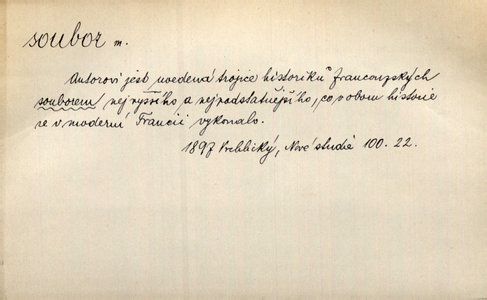 soubor m.
Autorovi jest uvedená trojice historiků francouzských
souborem nejvyššího a nejpodstatnějšího, co v oboru historie
se v moderní Francii vykonalo.
1897 Vrchlický, Nové studie 100. 22.